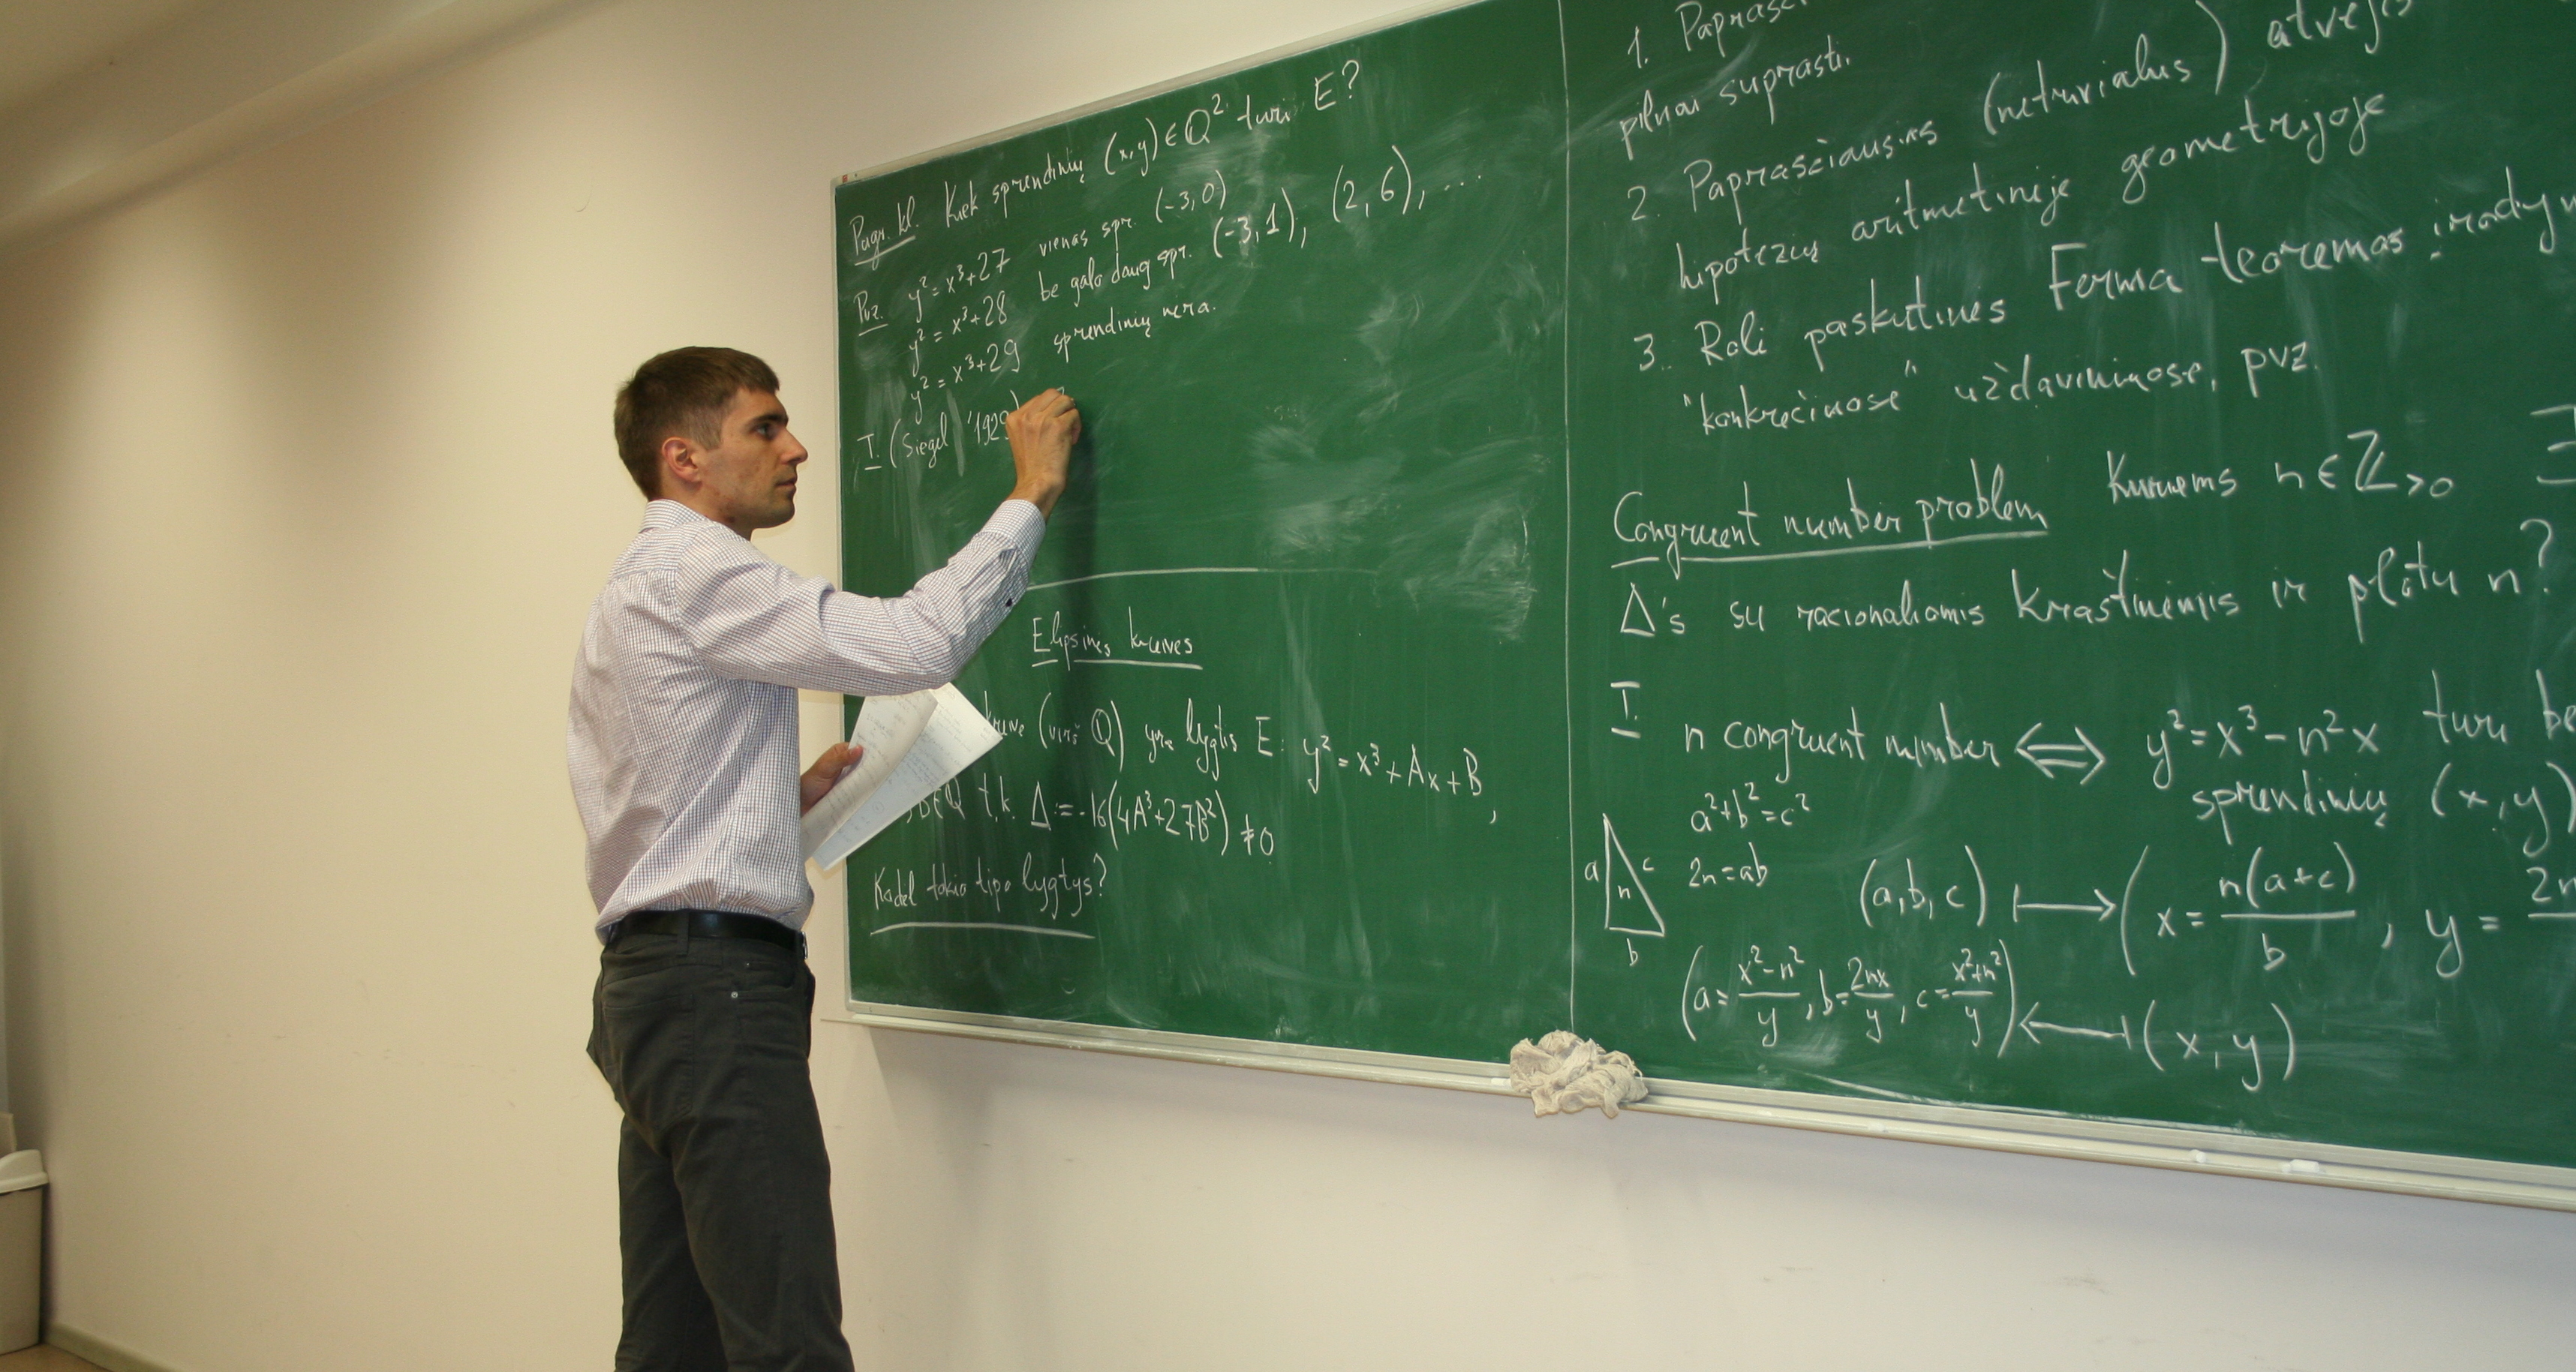 Pagr. kl. Kiek sprendinių (x,y) ∈ Q² turi E?
Pvz. y² = x³+27 vienas spr. (-3,0)
y² = x³+28 be galo daug spr. (-3,1), (2,6), ...
y² = x³+29 sprendinių nėra.
T. (Siegel '1929)
Elipsinės kreivės
kreivė (virš Q) yra lygtis E: y² = x³+Ax+B,
B∈Q t.k. Δ:=-16(4A³+27B²) ≠0
Kodėl tokio tipo lygtys?
1. Paprasč
pilnai suprasti.
2. Paprasčiausias (netrivialus) atvejis
hipotezių aritmetinėje geometrijoje
3. Roli paskutinės Ferma teoremos įrodym
"konkrečiuose" uždaviniuose, pvz.
Congruent number problem Kuriems n ∈ Z>0 ∃
Δ's su racionaliomis kraštinėmis ir plotu n?
T. n congruent number ⟺ y²=x³-n²x turi be
sprendinių (x,y)
a²+b²=c²
a c n b
2n=ab
(a,b,c) ⟼ (x = n(a+c)/b, y = 2n
(a = x²-n²/y, b = 2nx/y, c = x²+n²/y) ⟻ (x,y)